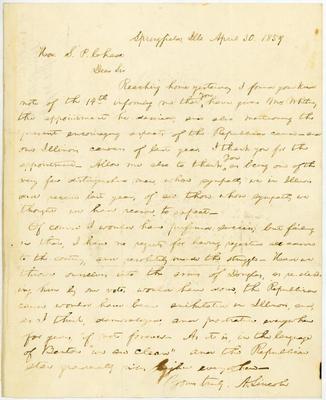 Springfield, Ills. April 30. 1859
Hon. S. P. Chase
Dear Sir
Reaching home yesterday I found your kind
note of the 14th informing me that you have given Mr. Whitney
the appointment he desired; and also mentioning the
present encouraging aspects of the Republican cause—and
our Illinois canvass of last year. I thank you for the
appointment. Allow me also to thank you as being one of the
very few distinguished men, whose sympathy we in Illinois
did receive last year, of all those whose sympathy we
thought we had reason to expect—
Of course I would have preferred success; but failing
in that, I have no regrets for having rejected all advice
to the contrary, and resolutely made the struggle— Had we
thrown ourselves into the arms of Douglas, as re-elect-
ing him by our votes would have done, the Republican
cause would have been annihilated in Illinois, and,
as I think, demoralized, and prostrated everywhere
for years, if not forever. As it is, in the language
of Benton "we are clean" and the Republican
star gradually rises higher everywhere.
Yours truly, A. Lincoln